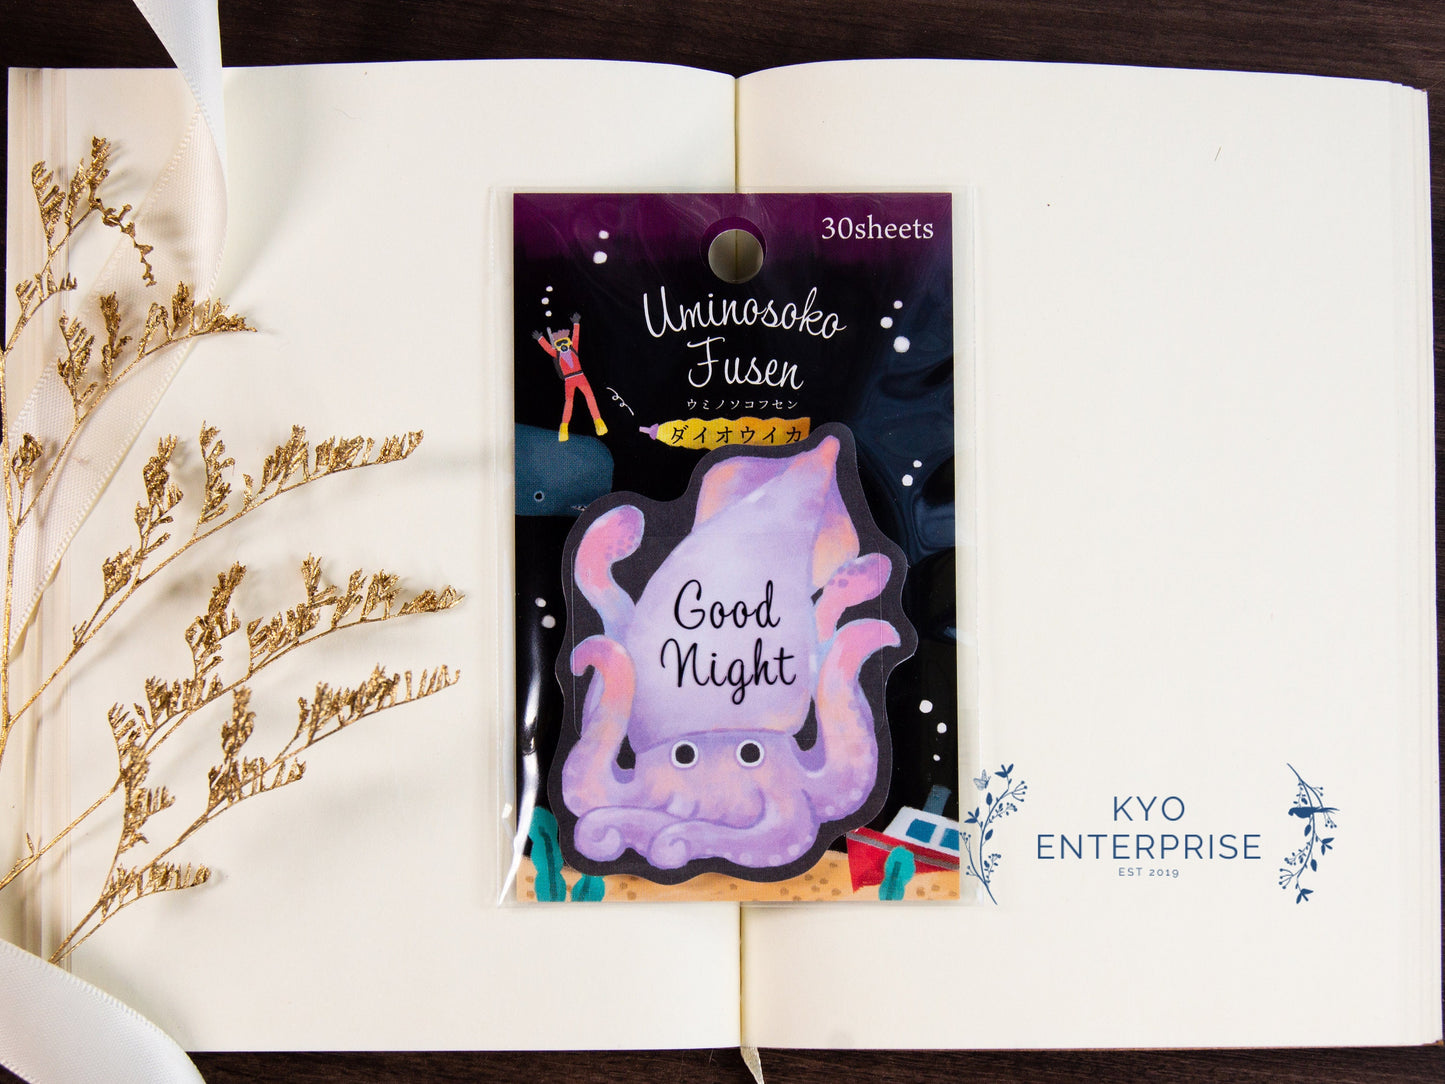 30sheets
Uminosoko
Fusen
ウミノソコフセン
ダイオウイカ
Good
Night
KYO
ENTERPRISE
EST 2019